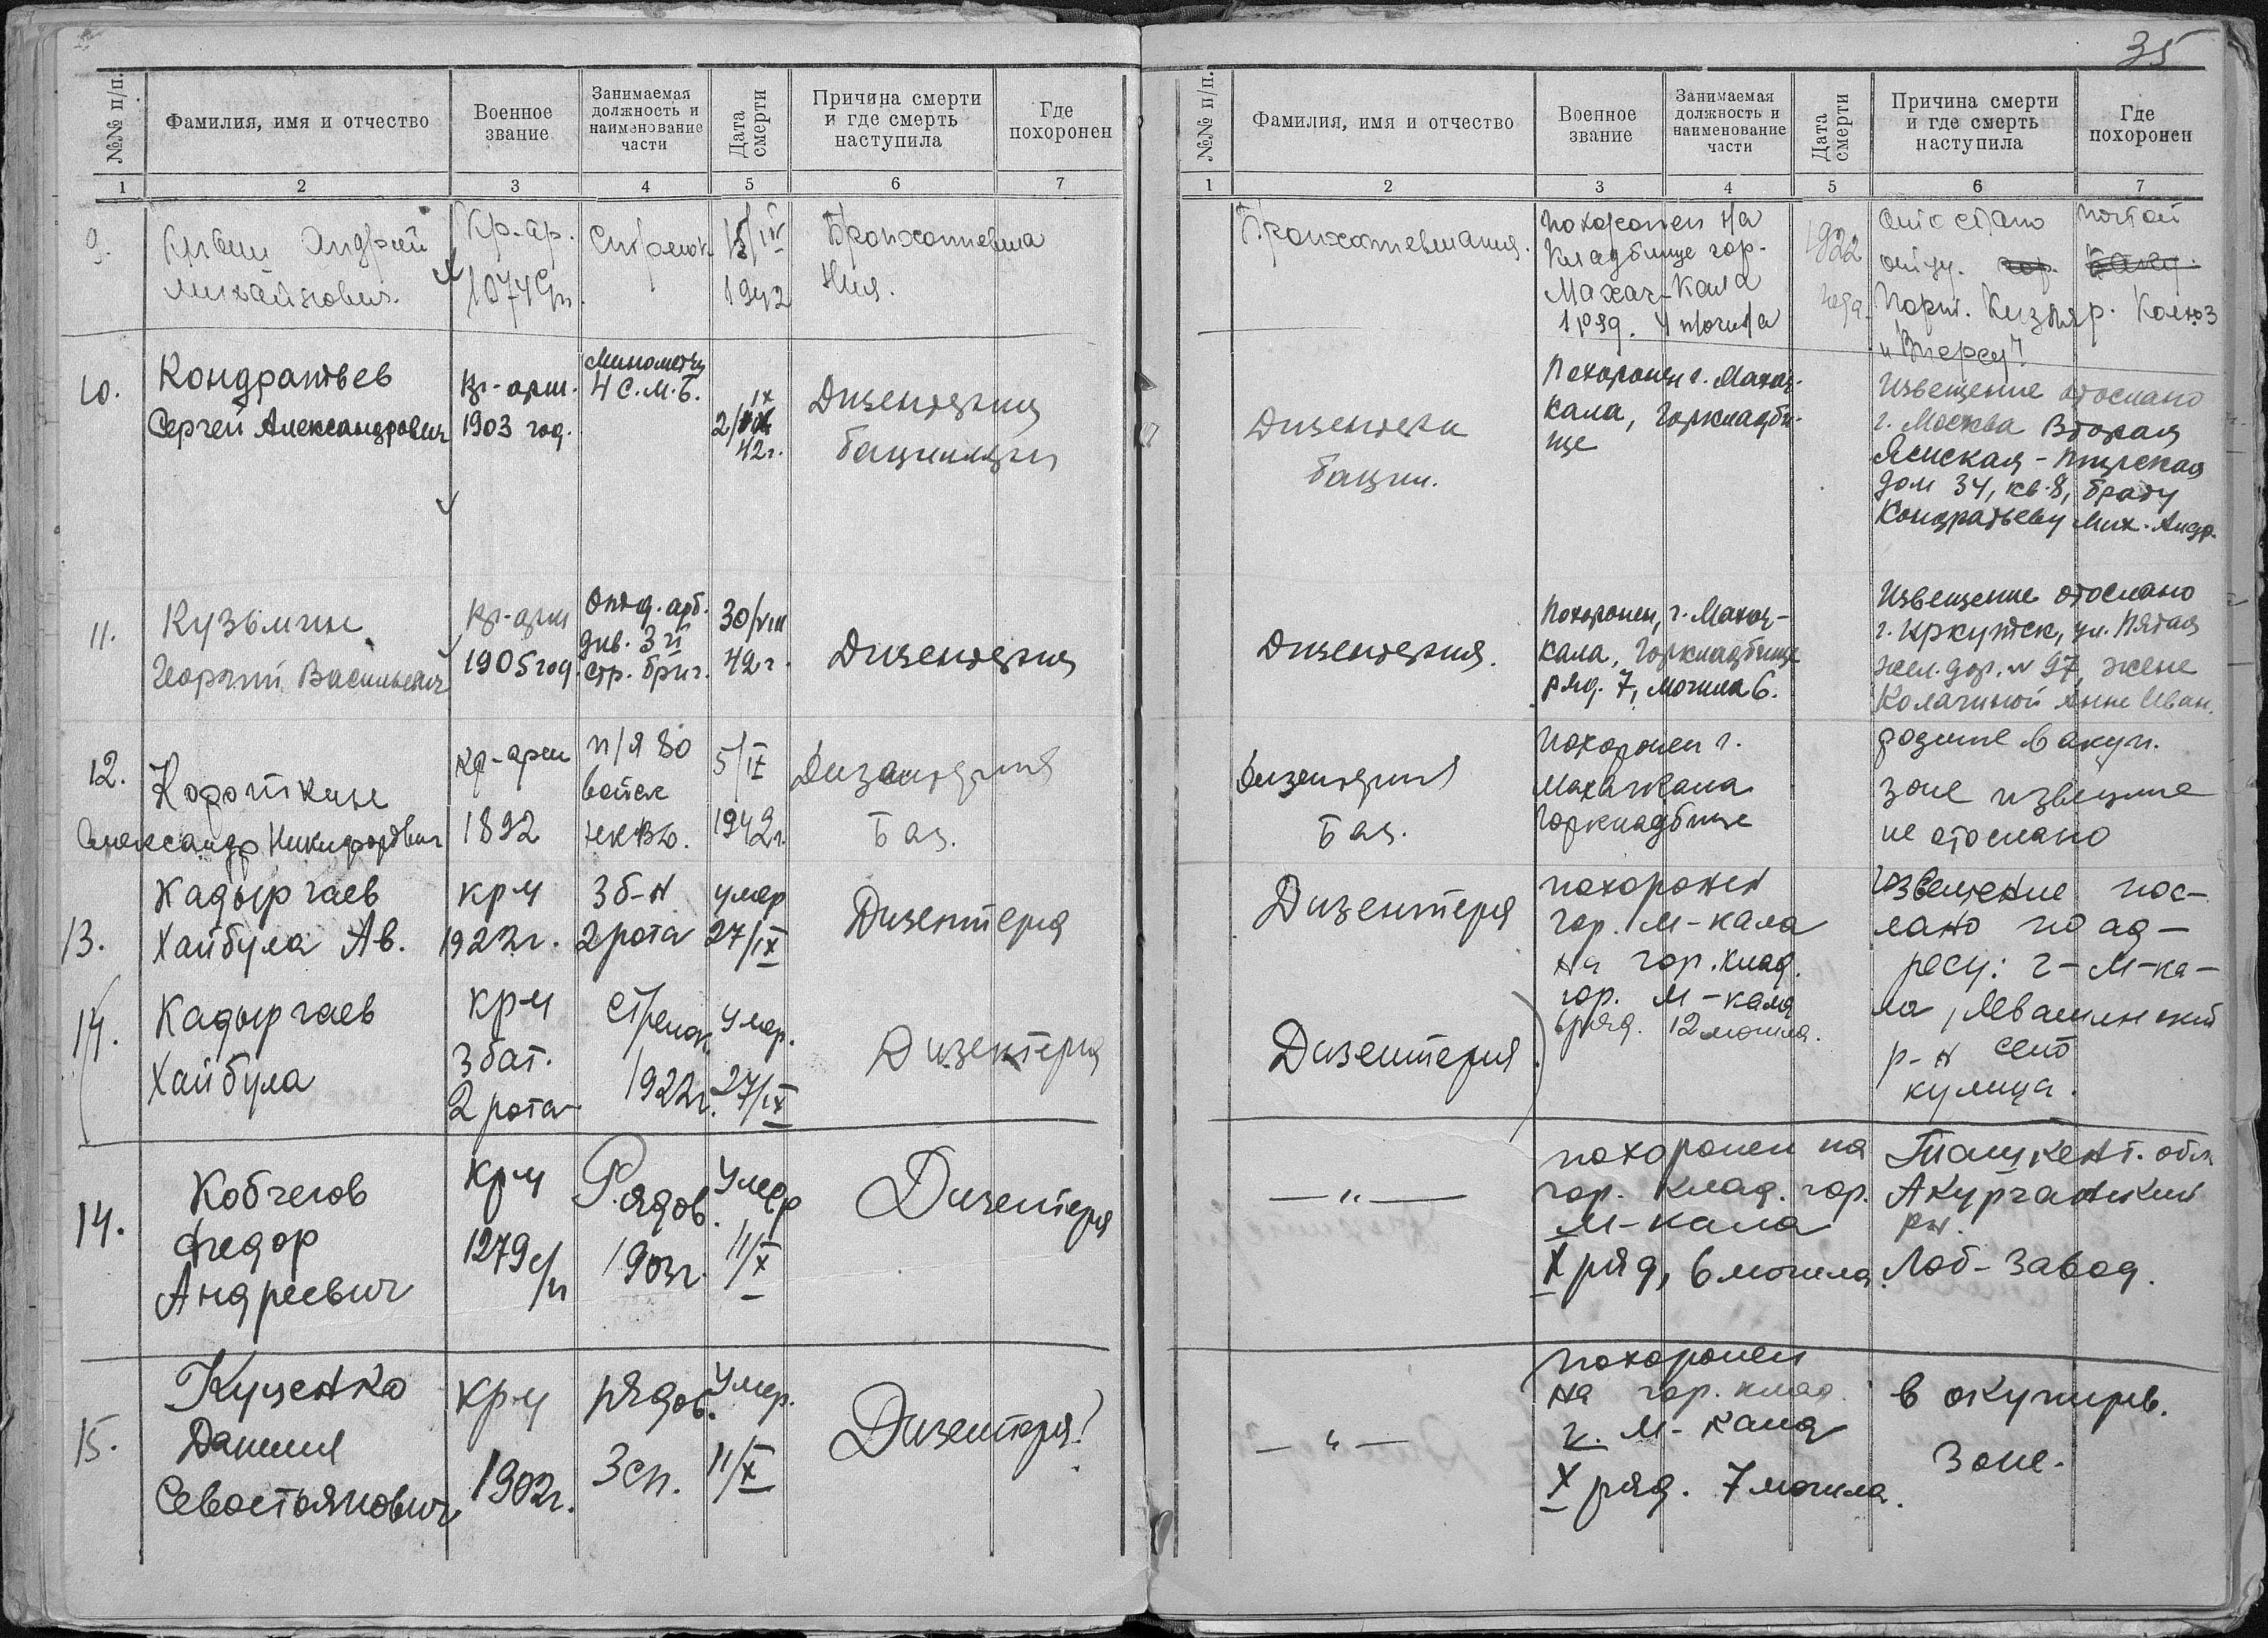 35
№№ п/п.
Фамилия, имя и отчество
Военное звание
Занимаемая должность и наименование части
Дата смерти
Причина смерти и где смерть наступила
Где похоронен
1 2 3 4 5 6 7
9.
Андрей
Михайлович.
Кр-ар.
1074 сп.
15/IX
1942
Бронхопневмо
ния.
10.
Кондратьев
Сергей Александрович
кр-арм.
1903 год.
Минометч
4 С.М.Б.
IX
2/
42г.
Дизентерия
бациллярн
11.
Кузьмин
Георгий Васильевич
кр-арм
1905 год.
Отд. арт.
див. 3й
стр. бриг.
30/VIII
42г.
Дизентерия
12.
Короткин
Александр Никифорович
кр-арм
1892
п/я 80
войск
НКВД.
5/IX
1942г.
Дизантерия
Бац.
13.
Кадыргаев
Хайбула Ав.
кр-ц
1922г.
3 б-н
2 рота
умер
27/IX
Дизентерия
14.
Кадыргаев
Хайбула
кр-ц
3 бат.
2 рота
Стрелок
1922г.
Умер.
27/IX
Дизентерия
14.
Кобчегов
Федор
Андреевич
кр-ц
1279 с/п
Рядов.
1903г.
Умер
11/X
Дизентеря
15.
Куценко
Даниил
Севостьянович
кр-ц
1902г.
рядов.
3 сп.
Умер.
11/X
Дизентеря!
№№ п/п.
Фамилия, имя и отчество
Военное звание
Занимаемая должность и наименование части
Дата смерти
Причина смерти и где смерть наступила
Где похоронен
1 2 3 4 5 6 7
похоронен на
кладбище гор-
Махач-Кала
1 ряд. 4 могила
1922
года.
отослано почтой
отцу. гор. Баку.
Колхоз
"Вперед"
Дизентери
бацил.
Похоронен г. Махач-
кала, Горкладби-
ще
Извещение отослано
г. Москва Вторая
дом 34, кв. 8, брату
Кондратьеву Мих. Андр.
Дизентерия.
Похоронен, г. Махач-
кала, Горкладбище
ряд. 7, могила 6.
Извещение отослано
г. Иркутск, ул. Пятая
жел. дор. № 97, жене
Колачиной Анне Иван.
Дизентерия
Бац.
Похоронен г.
Махачкала
Горкладбище
родине в акуп.
зоне извещние
не отослано
Дизентеря
похоронен
гор. М-кала
на гор. клад.
извещение пос-
лано по ад-
ресу: г-М-ка-
ла, Левашинский
р-н село
кулица.
Дизентерия
гор. М-кала
ряд. 12 могила.
— " —
похоронен на
гор. клад. гор.
М-кала
X ряд, 6 могила.
Ташкент. обл
Акурганский
рн.
Лоб-Завод.
— " —
похоронен
на гор. клад.
г. М-кала
X ряд. 7 могила.
в окупирв.
зоне.